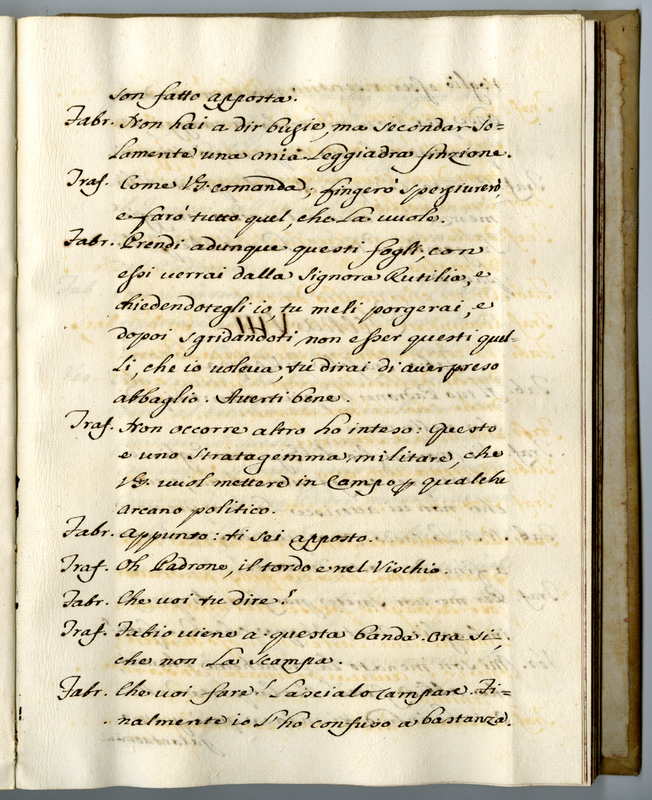 son fatto apposta.
Fabr. Non hai a dir bugie, ma secondar so=
lamente una mia leggiadra finzione.
Traf. Come VS. comanda; fingerò spergiurerò,
e farò tutto quel, che la vuole.
Fabr. Prendi adunque questi fogli, con
essi verrai dalla Signora Rutilia, e
chiedendotegli io, tu meli porgerai, e
dopoi sgridandoti, non esser questi quel=
li, che io voleva, tu dirai di aver preso
abbaglio. Averti bene.
Traf. Non occorre altro ho inteso: Questo
e uno Stratagemma militare, che
VS. vuol mettere in Campo p qualche
arcano politico.
Fabr. Appunto: ti sei apposto.
Traf. Oh Padrone, il tordo e nel Vischio.
Fabr. Che voi tu dire?
Traf. Fabio viene a questa banda. Ora si,
che non la scampa.
Fabr. Che voi fare? Lascialo campare. Fi=
nalmente io l'ho confuso a bastanza.